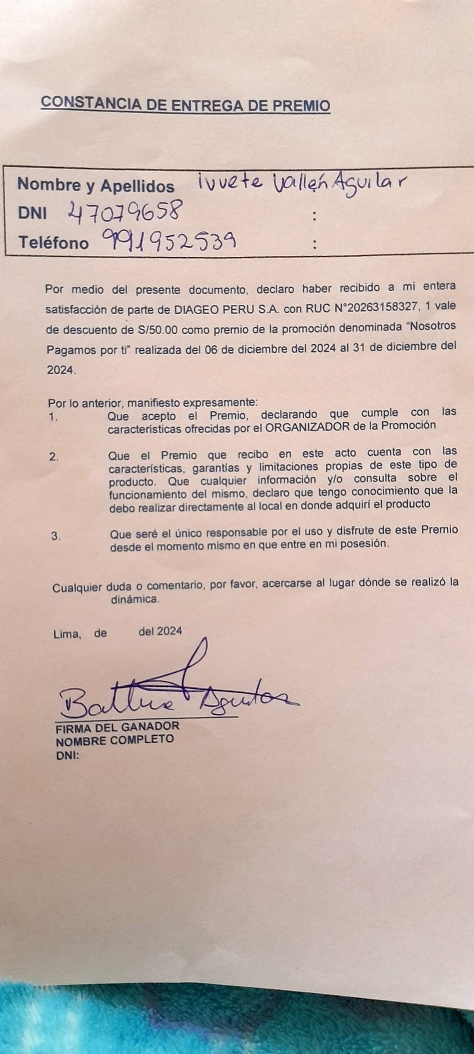 CONSTANCIA DE ENTREGA DE PREMIO
Nombre y Apellidos Ivvete Vallejń Aguilar
DNI 47079658 :
Teléfono 991952539 :
Por medio del presente documento, declaro haber recibido a mi entera
satisfacción de parte de DIAGEO PERU S.A. con RUC N°20263158327, 1 vale
de descuento de S/50.00 como premio de la promoción denominada “Nosotros
Pagamos por ti” realizada del 06 de diciembre del 2024 al 31 de diciembre del
2024.
Por lo anterior, manifiesto expresamente:
1. Que acepto el Premio, declarando que cumple con las
características ofrecidas por el ORGANIZADOR de la Promoción
2. Que el Premio que recibo en este acto cuenta con las
características, garantías y limitaciones propias de este tipo de
producto. Que cualquier información y/o consulta sobre el
funcionamiento del mismo, declaro que tengo conocimiento que la
debo realizar directamente al local en donde adquirí el producto
3. Que seré el único responsable por el uso y disfrute de este Premio
desde el momento mismo en que entre en mi posesión.
Cualquier duda o comentario, por favor, acercarse al lugar dónde se realizó la
dinámica.
Lima, de del 2024
Aguilar
FIRMA DEL GANADOR
NOMBRE COMPLETO
DNI: